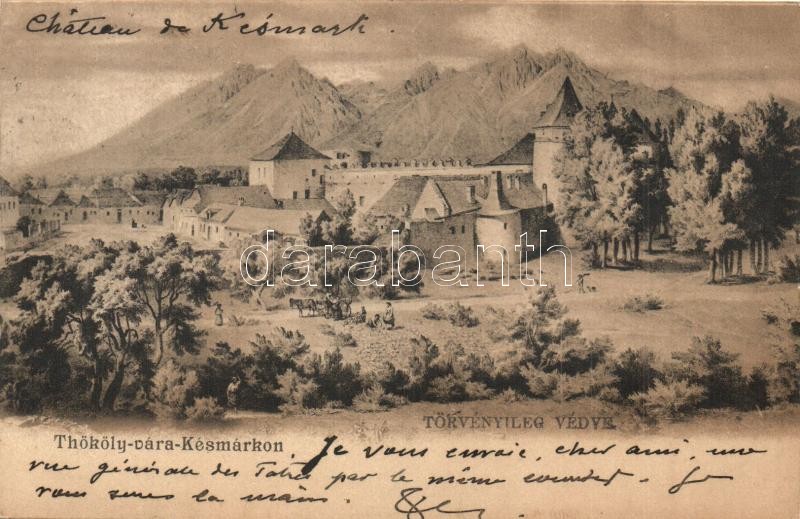 Château de Késmark.
darabanth
TÖRVÉNYILEG VÉDVE.
Thököly-vára-Késmárkon
Je vous envoie, cher ami, une
vue générale des Tatra par le même courrier. Je
vous serre la main.